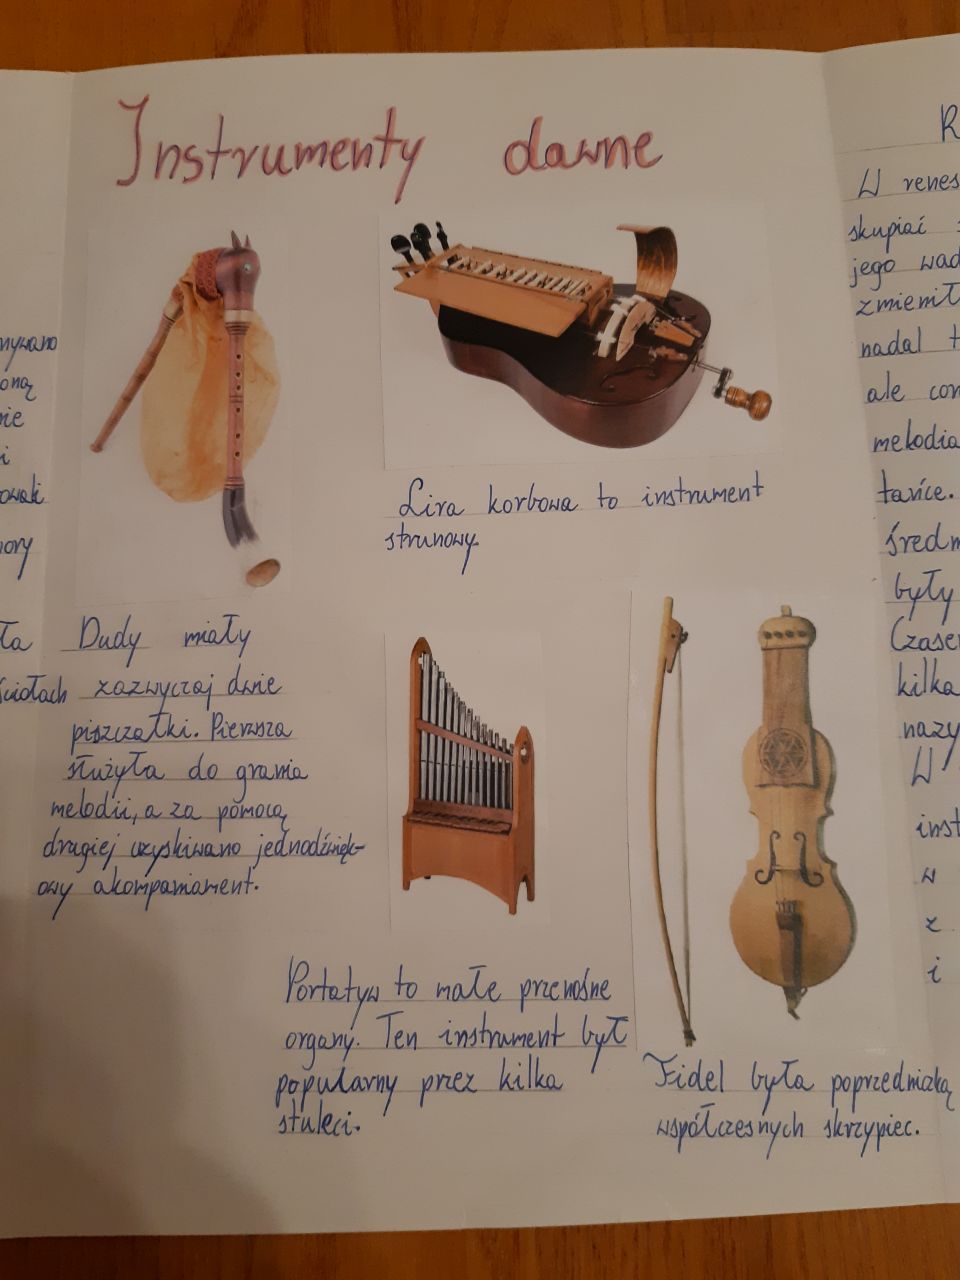 Instrumenty dawne
Lira korbowa to instrument
strunowy.
Dudy miały
zazwyczaj dwie
piszczałki. Pierwsza
służyła do grania
melodii, a za pomocą
drugiej uzyskiwano jednodźwięk-
owy akompaniament.
Portatyw to małe przenośne
organy. Ten instrument był
popularny przez kilka
stuleci.
Fidel była poprzedniczką
współczesnych skrzypiec.
R
W renes
skupiać
jego wad
zmienił
nadal t
ale con
melodia
tańce.
średn
były
Czasem
kilka
nazy
W
inst
w
z
i